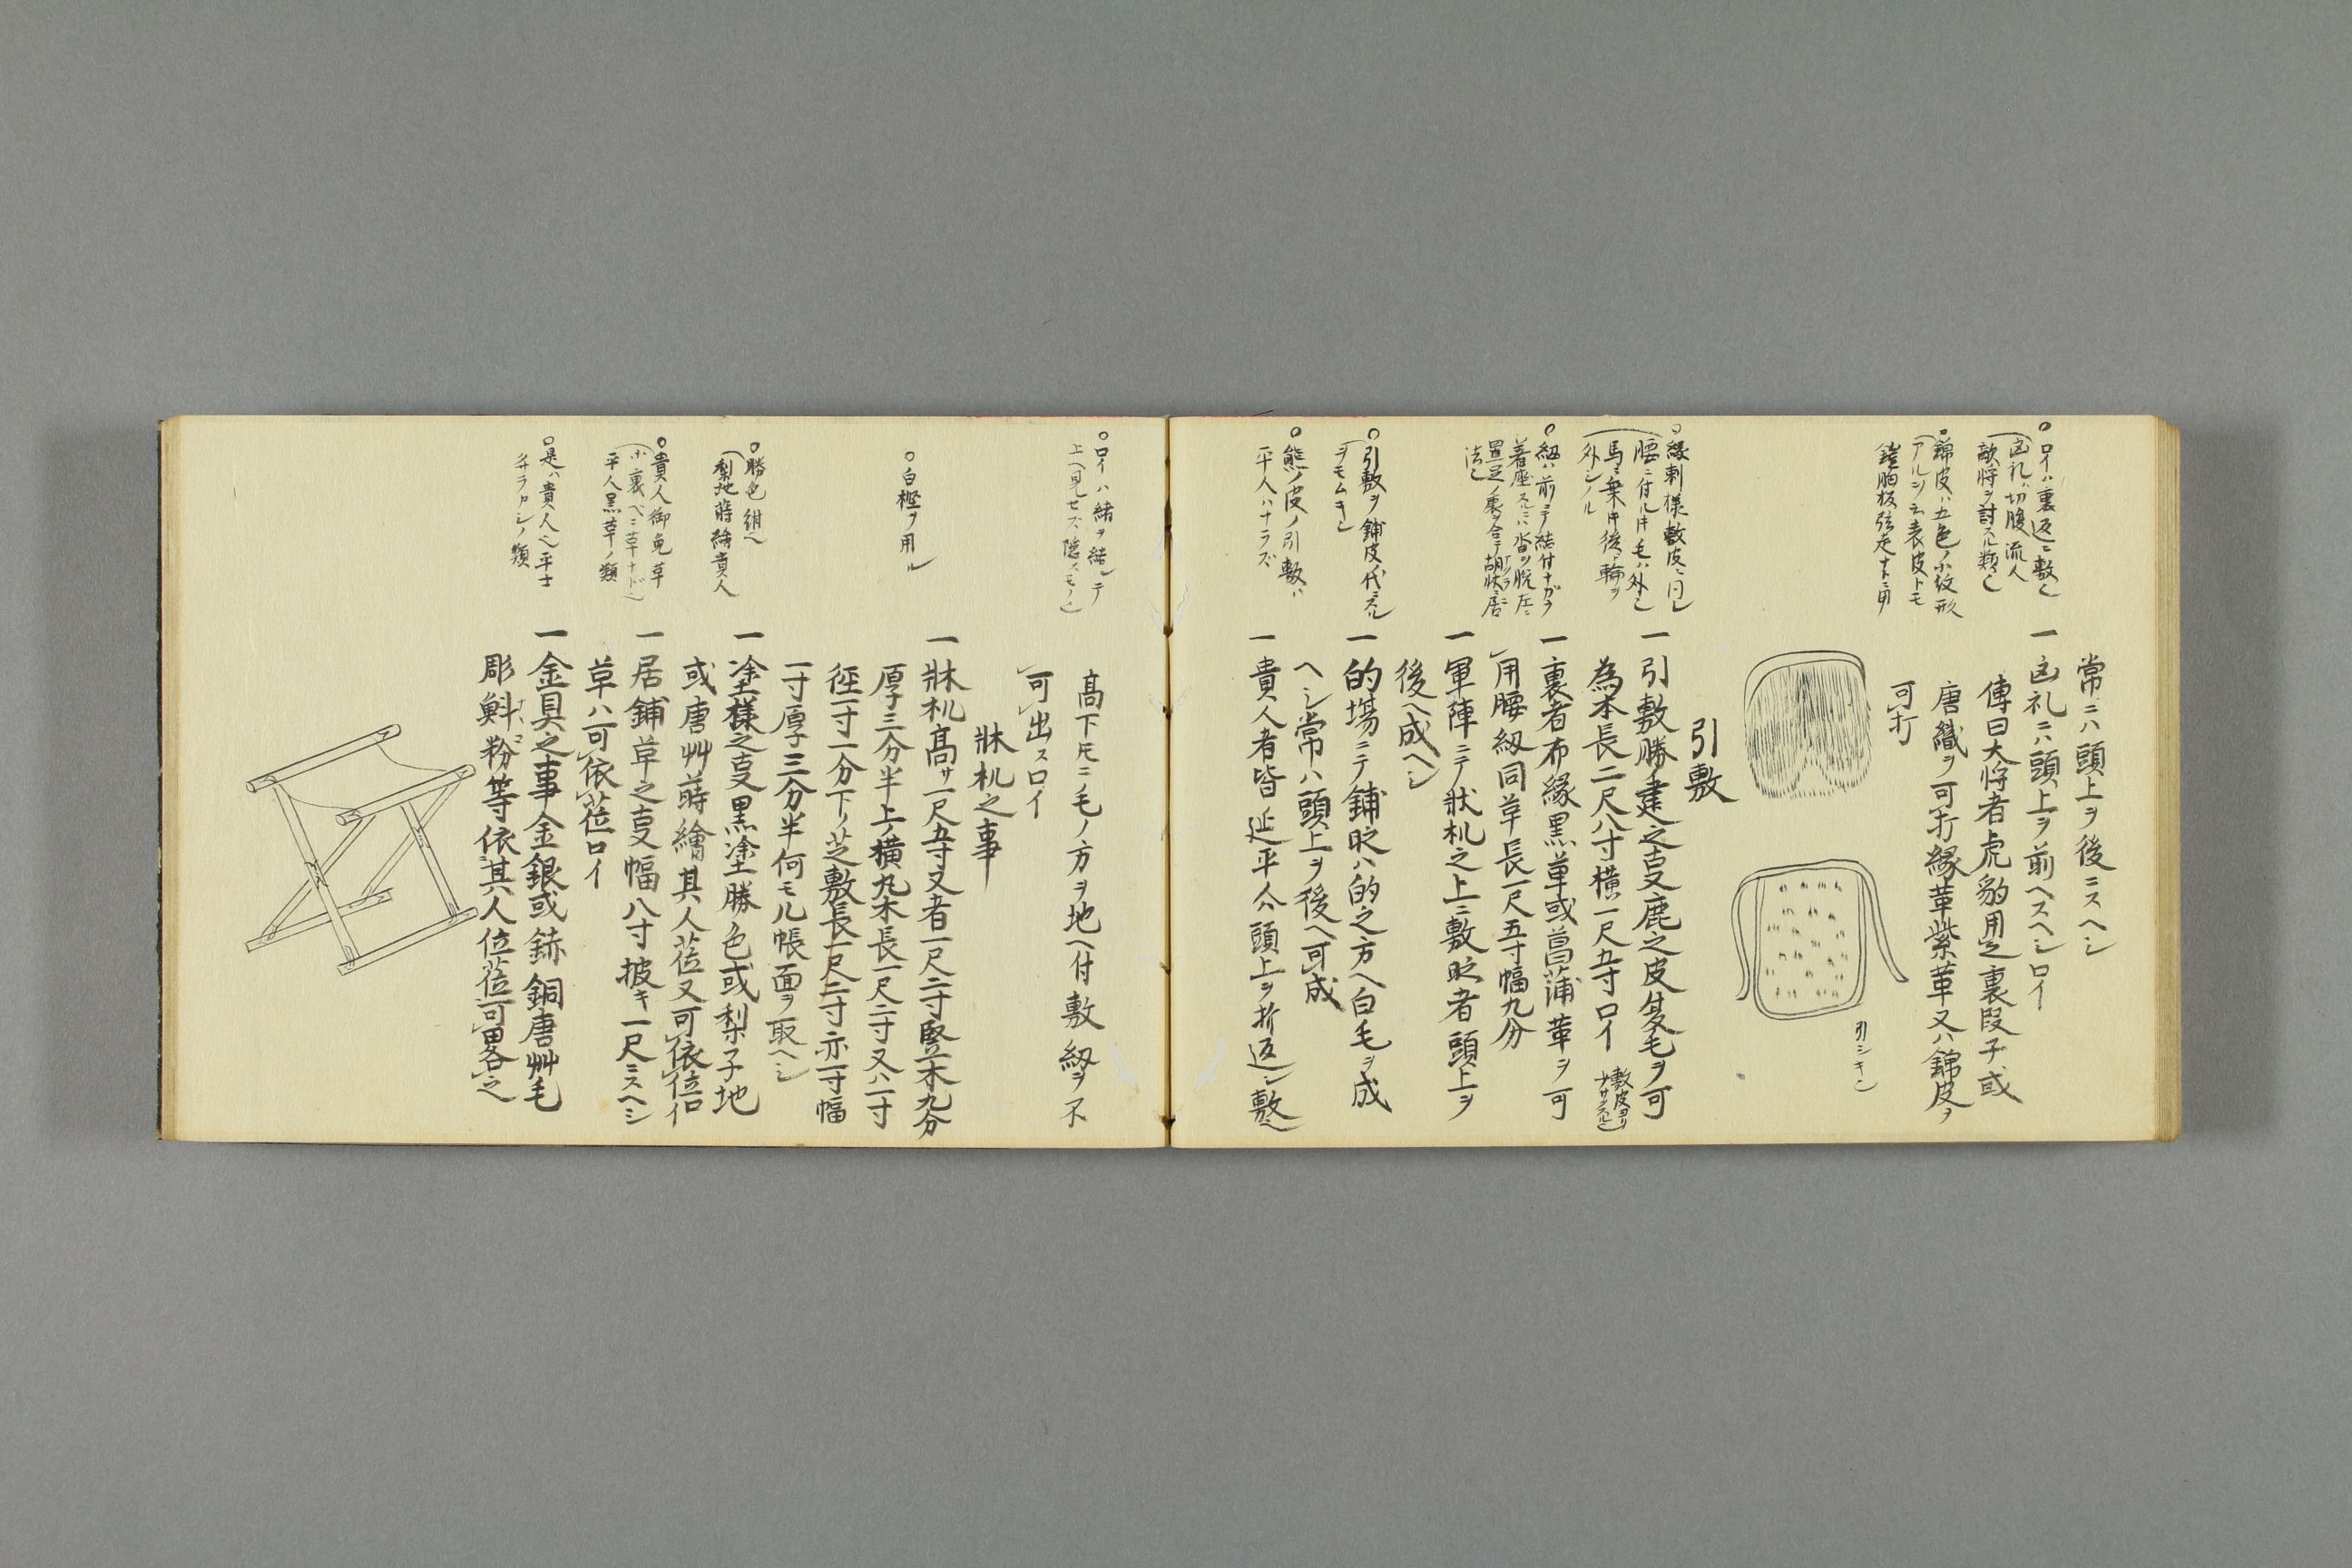 常ニハ頭上ヲ後ニスヘシ
一凶礼ニハ頭上ヲ前ヘスヘシ口イ
傳曰大将者虎豹用之裏段子或
唐織ヲ可打縁革紫革又ハ錦皮ヲ
可打
○口イハ裏返ニ敷也
凶礼ハ切腹流人
敵将ヲ討スル類也
○錦皮ハ五色ノ小紋形
鎧胸板弦走ナトニ用
引シキ
引敷
一引敷勝建之事鹿之皮冬毛ヲ可
為本長二尺八寸横一尺五寸口イ
一裏者布縁黒革或菖蒲革ヲ可
用腰紐同革長一尺五寸幅九分
一軍陣ニテ牀机之上ニ敷時者頭上ヲ
後ヘ成ヘシ
一的場ニテ鋪時ハ的之方ヘ白毛ヲ成
ヘシ常ハ頭上ヲ後ヘ可成
一貴人者皆延平人ハ頭上ヲ折返シ敷
○縁刺様敷皮ニ同シ
腰ニ付ル時毛ハ外也
馬ニ乗時後輪ヲ
外シノル
○紐ハ前ニテ結付ナガラ
着座スルニハ沓ヲ脱左ニ
置足ノ裏ヲ合テ胡牀ニ居
法也
○引敷ヲ鋪皮代ニスル
○熊ノ皮ノ引敷ハ
平人ハナラズ
高下尺ニ毛ノ方ヲ地ヘ付敷紐ヲ不
可出スロイ
牀机之事
一牀机高サ一尺五寸又者一尺二寸竪木九分
厚三分半上ノ横丸木長一尺二寸又ハ一寸
径一寸一分下ノ芝敷長一尺二寸亦一寸幅
一寸厚三分半何モ几帳面ヲ取ヘシ
一塗様之事黒塗勝色或梨子地
或唐艸蒔繪其人莅又可依位口イ
一居鋪革之事幅八寸披キ一尺ニスヘシ
革ハ可依莅口イ
一金具之事金銀或鉢銅唐艸毛
彫斜粉等依其人位莅可畧之
○口イハ緒ヲ結テ
上ヘ見セズ隠スモノ也
○白樫ヲ用ル
○勝色紺也
梨地蒔繪貴人
○貴人御免革
平人黒革ノ類
○是ハ貴人也平士